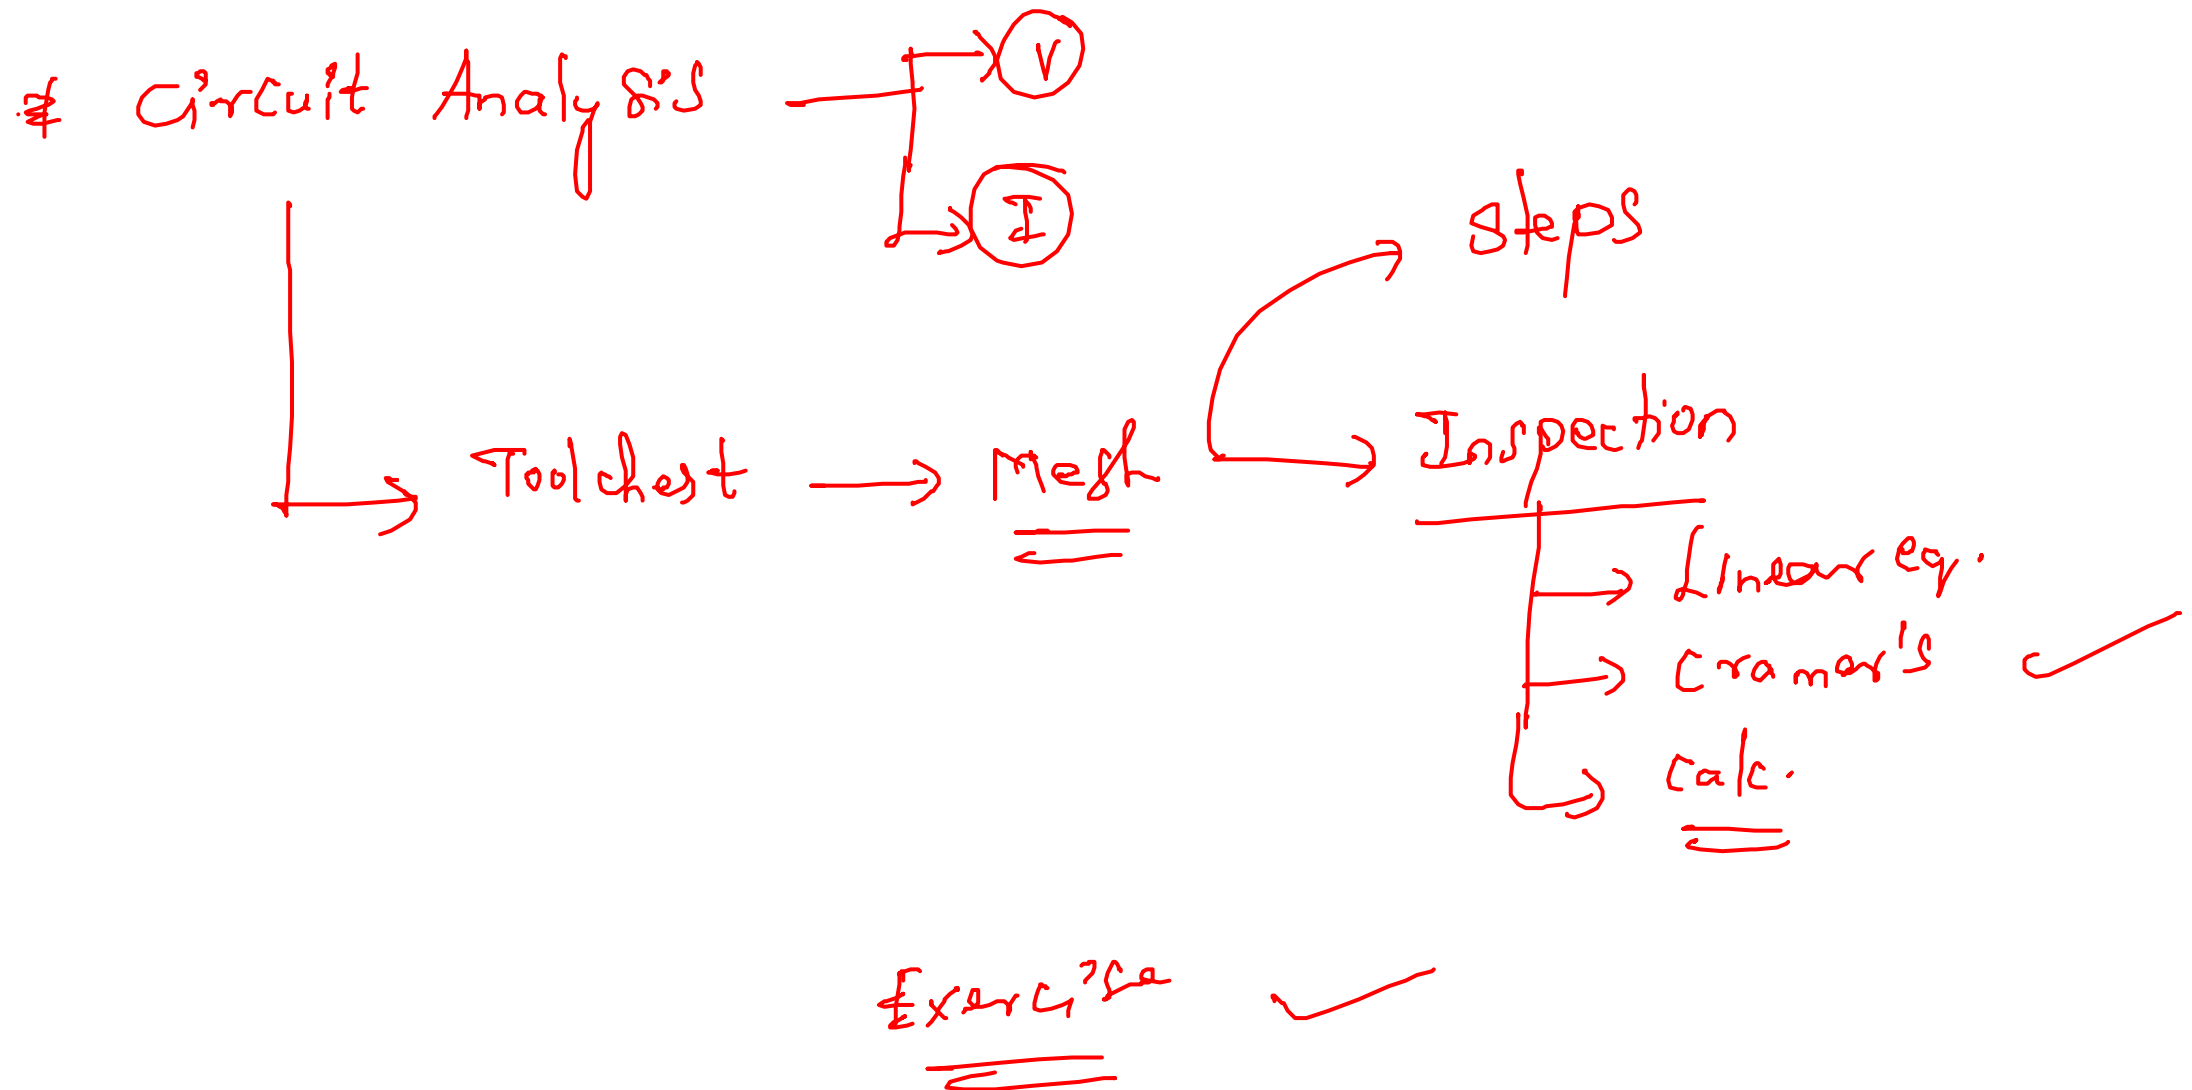 # Circuit Analysis
V
I
Steps
Toolchest → Mesh
Inspection
Linear eq.
Cramar's ✓
Calc.
Exercise ✓